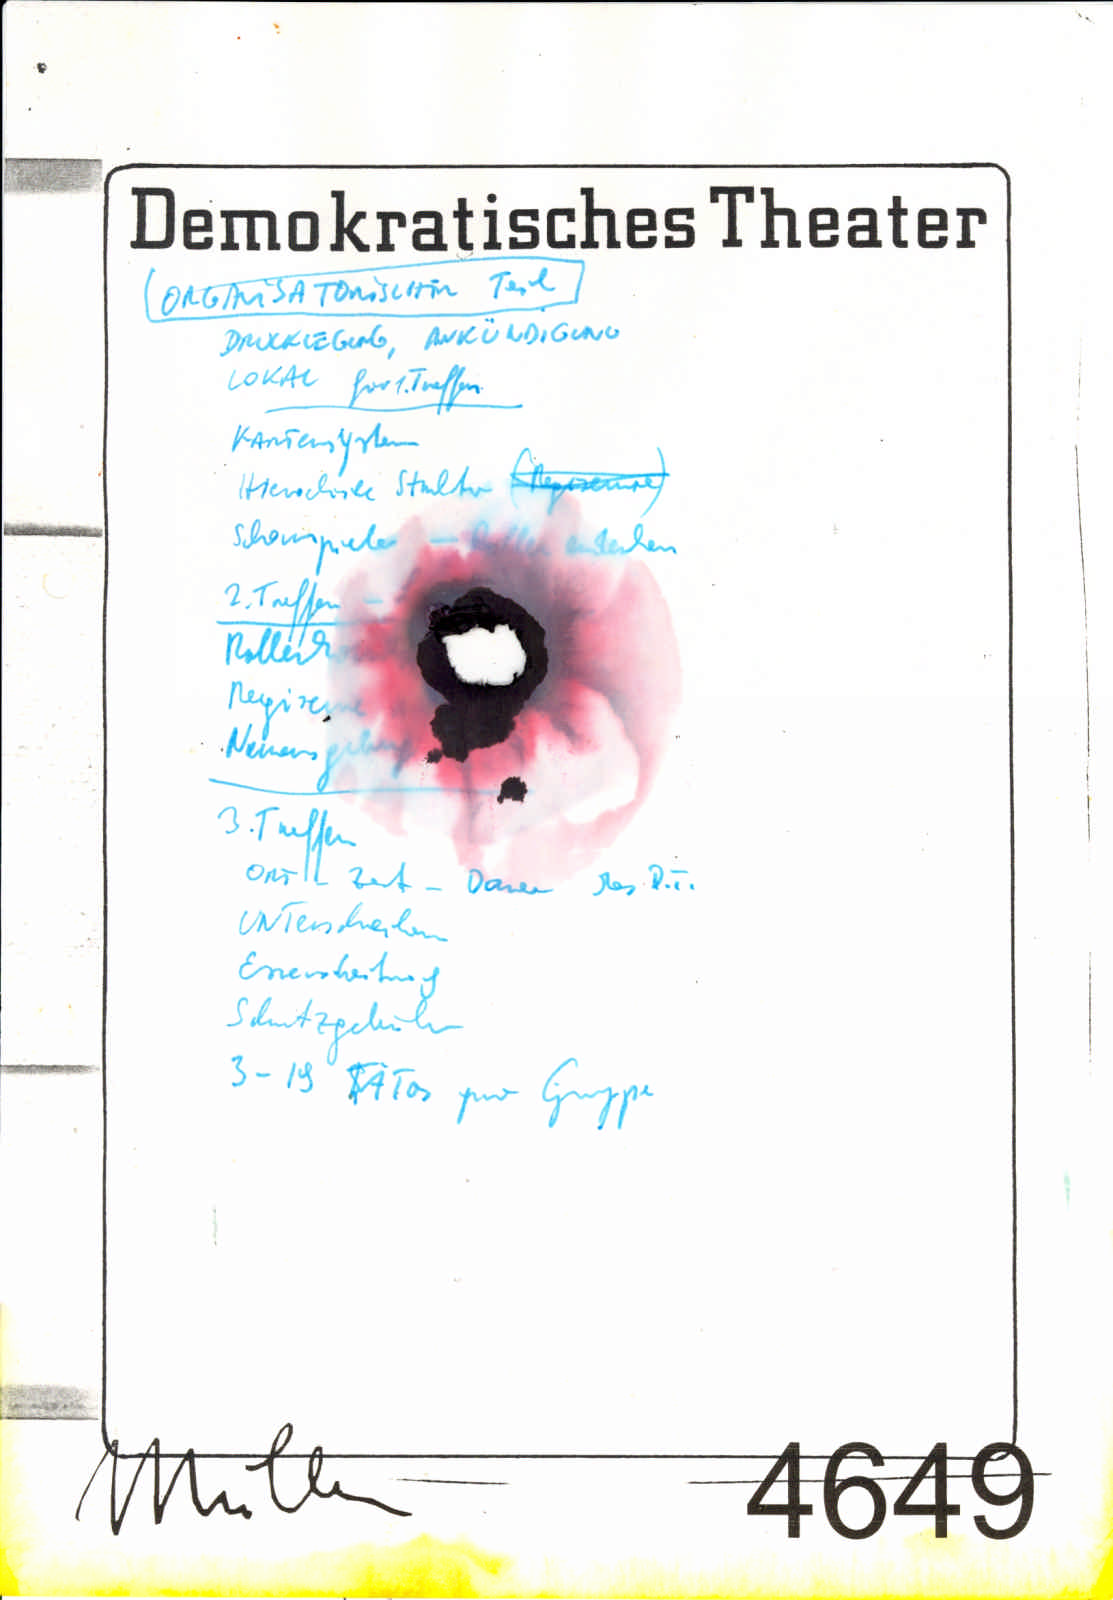 Demokratisches Theater
ORGANISATORISCHER Teil
DRUCKLEGUNG, ANKÜNDIGUNG
LOKAL für 1. Treffen
Kartensystem
Hierarchische Struktur (Regisseure)
Schauspieler — Rollen
2. Treffen —
Rollen
Regisseure
Namensgebung
3. Treffen
Ort - Zeit - Dauer des D.T.
Unterschreiben
Schutzgebühr
3 - 19 pro Gruppe
4649